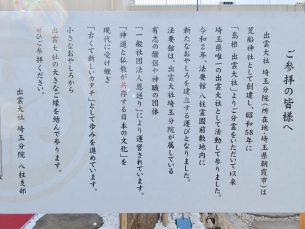 ご参拝の皆様へ
出雲大社 埼玉分院(所在地埼玉県朝霞市)は
荒船神社として創建し、昭和58年に
島根「出雲大社」よりご分霊をいただいて以来
埼玉県唯一の出雲大社として活動して参りました。
令和2年、法要館 八柱霊園前敷地内に
新たなおやしろを建立する運びとなりました。
法要館は、出雲大社 埼玉分院が属している
有志の僧侶や神職の団体
「一般社団法人恩送り」により運営されています。
「神道と仏教が共存する日本の文化」を
現代に受け継ぎ
「古くて新しいカタチ」として歩みを進めています。
小さなおやしろから
出雲大社の大きなご縁を結んで参ります。
ぜひご参拝ください。
出雲大社 埼玉分院 八柱支部